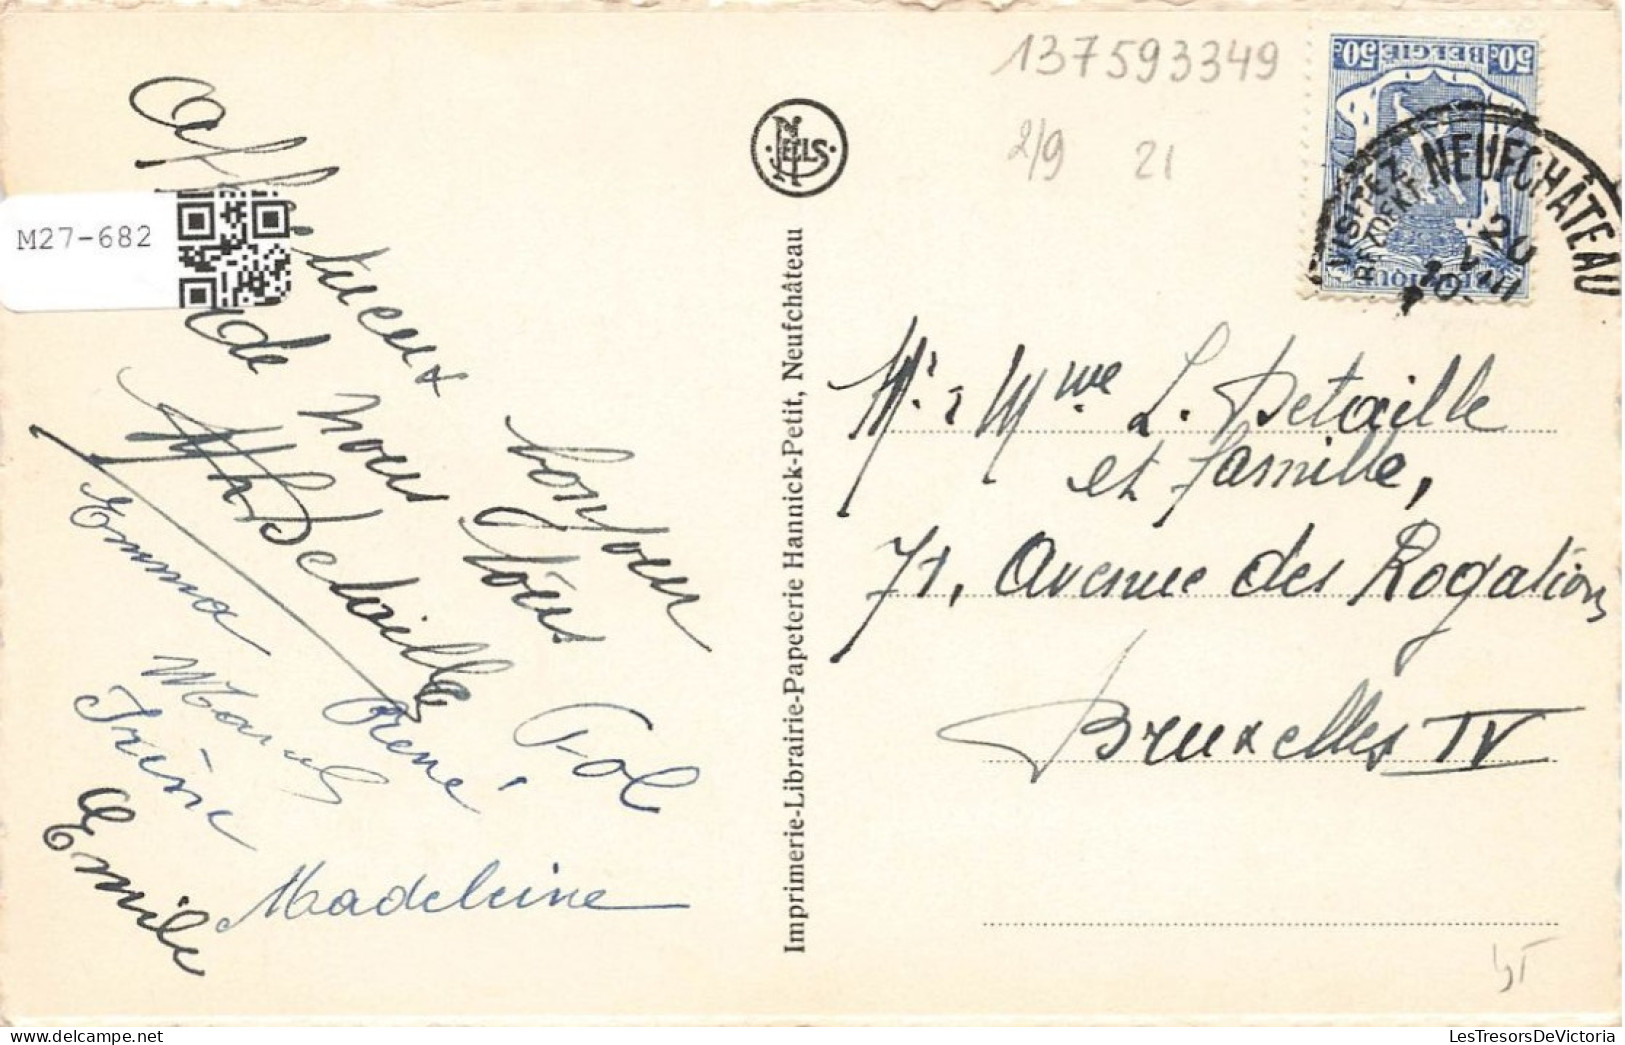 Affectueux bonjour
de nous tous
Detaille
Emma
Marcel
René
Pol
Irène
Emile
Madeleine
M27-682
NELS
Imprimerie-Librairie-Papeterie Hannick-Petit, Neufchâteau
137593349
2/9 21
50c BELGIE 50c
BELGIQUE
VISITEZ NEUFCHÂTEAU
BEZOEKT
20
VIII
Mr & Mme L. Detaille
et famille,
71, Avenue des Rogations
Bruxelles IV
LesTresorsDeVictoria